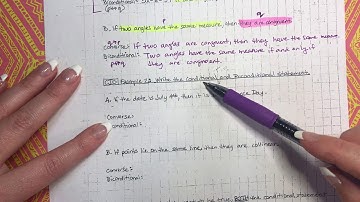 Biconditional:
(p↔q)
p q
B. If two angles have the same measure, then they are congruent.
q→p
converse: If two angles are congruent, then they have the same measure.
Biconditional: Two angles have the same measure if and only if
p↔q they are congruent.
Example 2: Write the conditional and Biconditional statements.
A. If the date is July, then it is Day.
Converse:
conditional:
B. If points lie on the same line, then they are collinear
converse:
Biconditional:
be true, the conditional statement